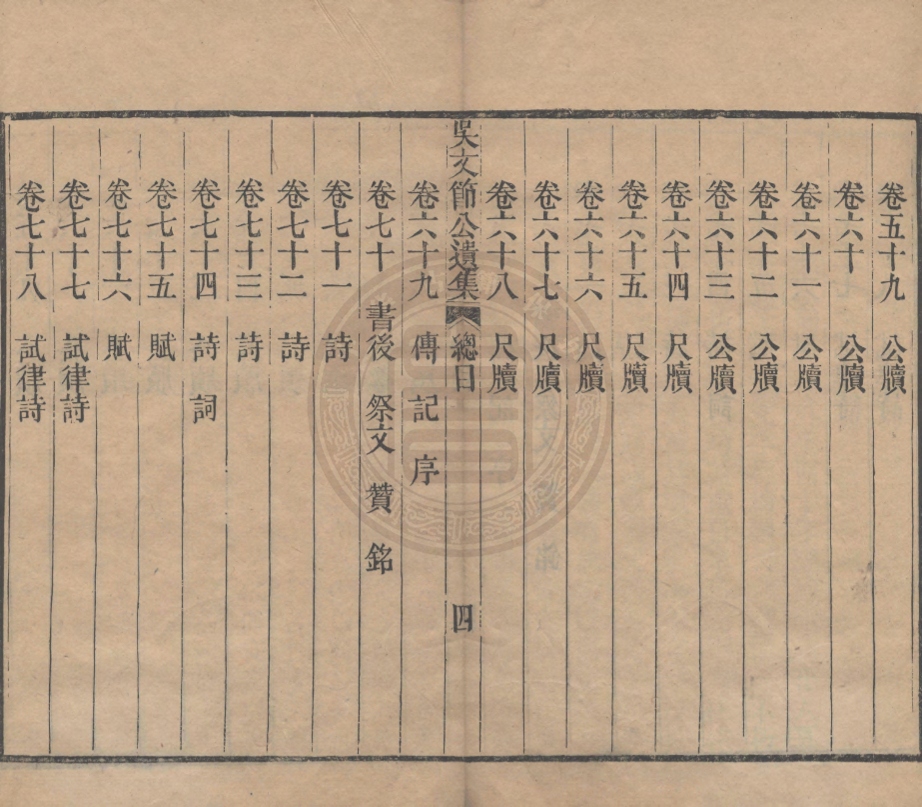 卷五十九 公牘
卷六十 公牘
卷六十一 公牘
卷六十二 公牘
卷六十三 公牘
卷六十四 尺牘
卷六十五 尺牘
卷六十六 尺牘
卷六十七 尺牘
卷六十八 尺牘
吳文節公遺集 總目 四
卷六十九 傳 記 序
卷七十 書後 祭文 贊 銘
卷七十一 詩
卷七十二 詩
卷七十三 詩
卷七十四 詩 詞
卷七十五 賦
卷七十六 賦
卷七十七 試律詩
卷七十八 試律詩